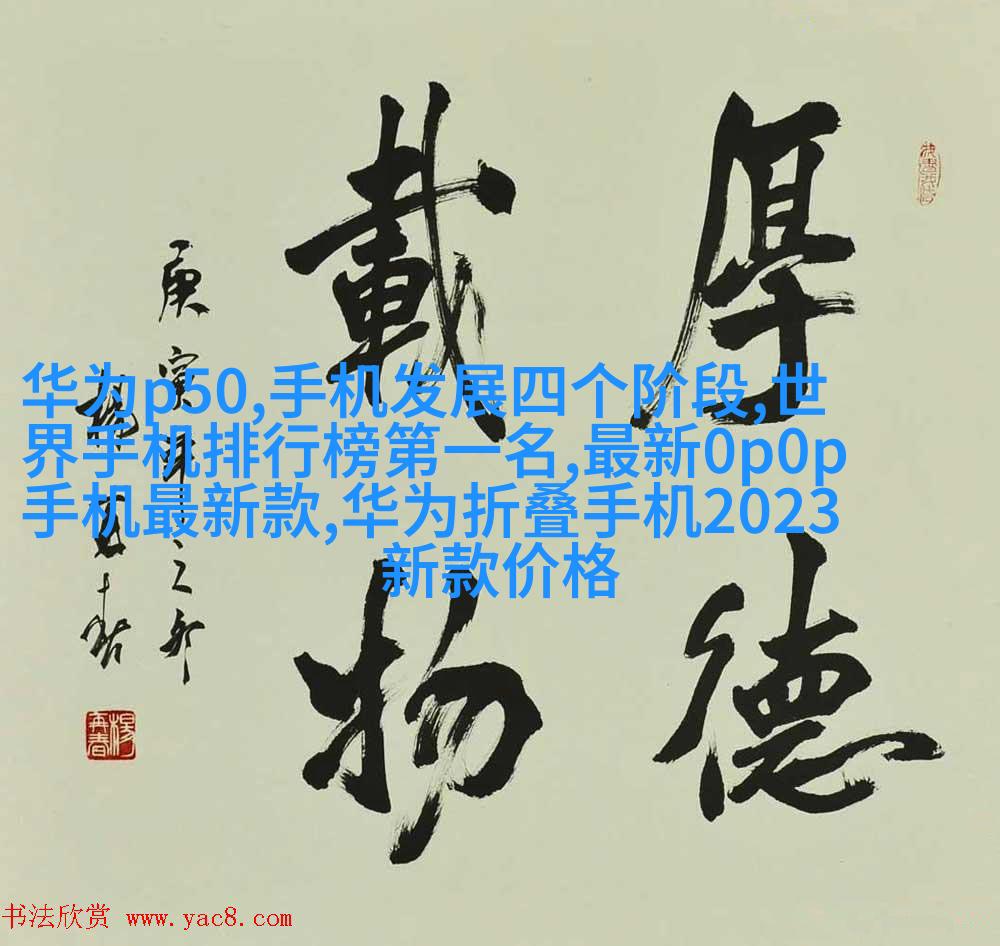 厚德
載物
庚寅
楊再春
楊再春
华为p50,手机发展四个阶段,世
界手机排行榜第一名,最新0p0p
手机最新款,华为折叠手机2023
新款价格
书法欣赏 www.yac8.com